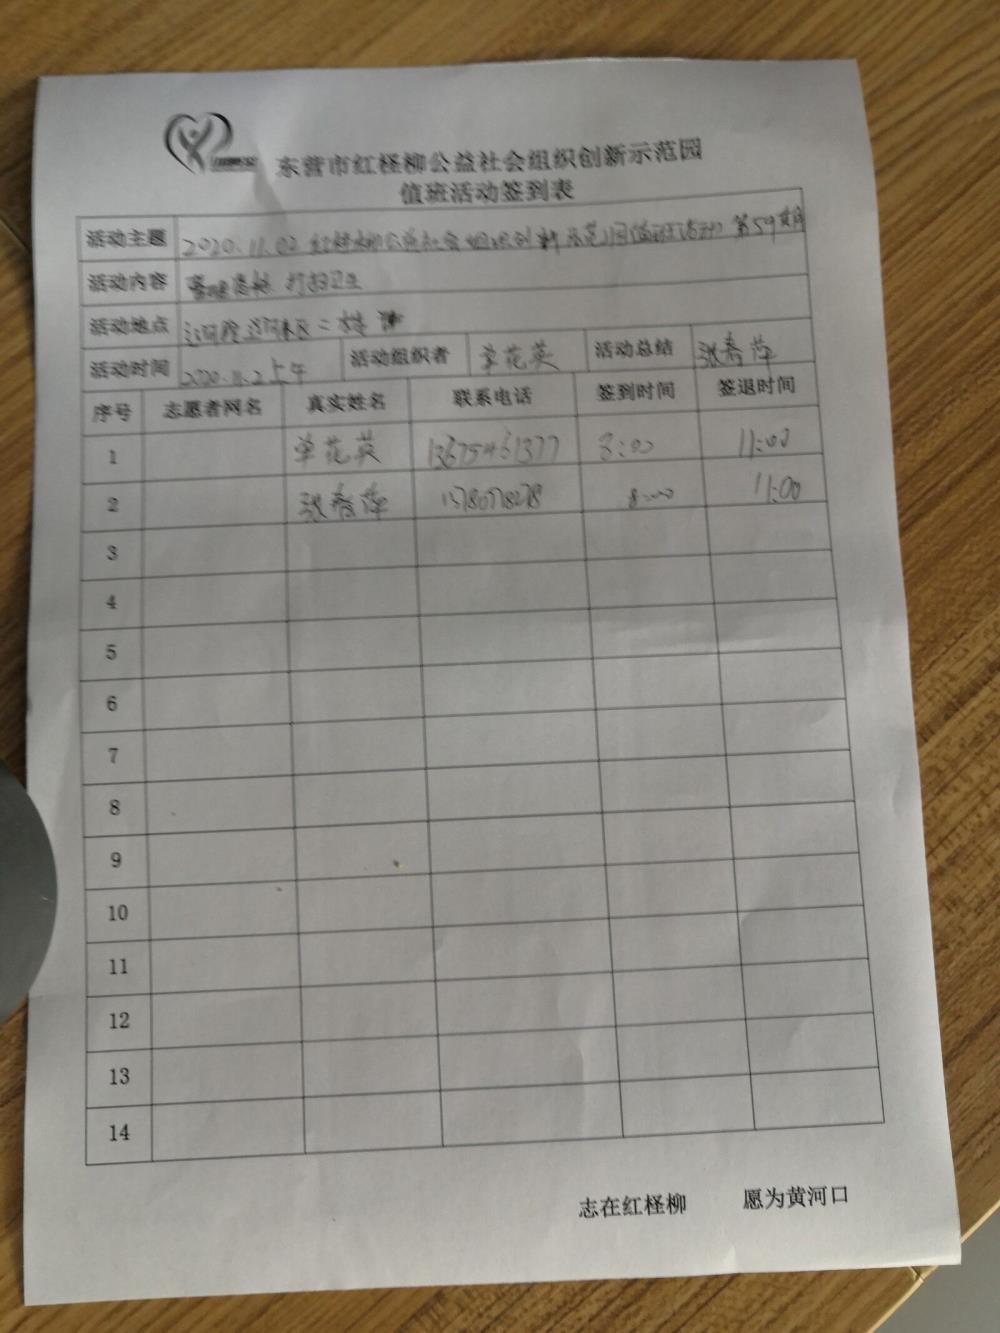 东营市红柽柳公益社会组织创新示范园
值班活动签到表
活动主题 2020.11.02 红柽柳公益社会组织创新示范园值班活动 第59期
活动内容 打扫卫生
活动地点 二楼
活动时间 2020.11.2上午 活动组织者 单花英 活动总结 张秀萍
序号 志愿者网名 真实姓名 联系电话 签到时间 签退时间
1 单花英 13675461377 8:00 11:00
2 张秀萍 8:00 11:00
3
4
5
6
7
8
9
10
11
12
13
14
志在红柽柳 愿为黄河口